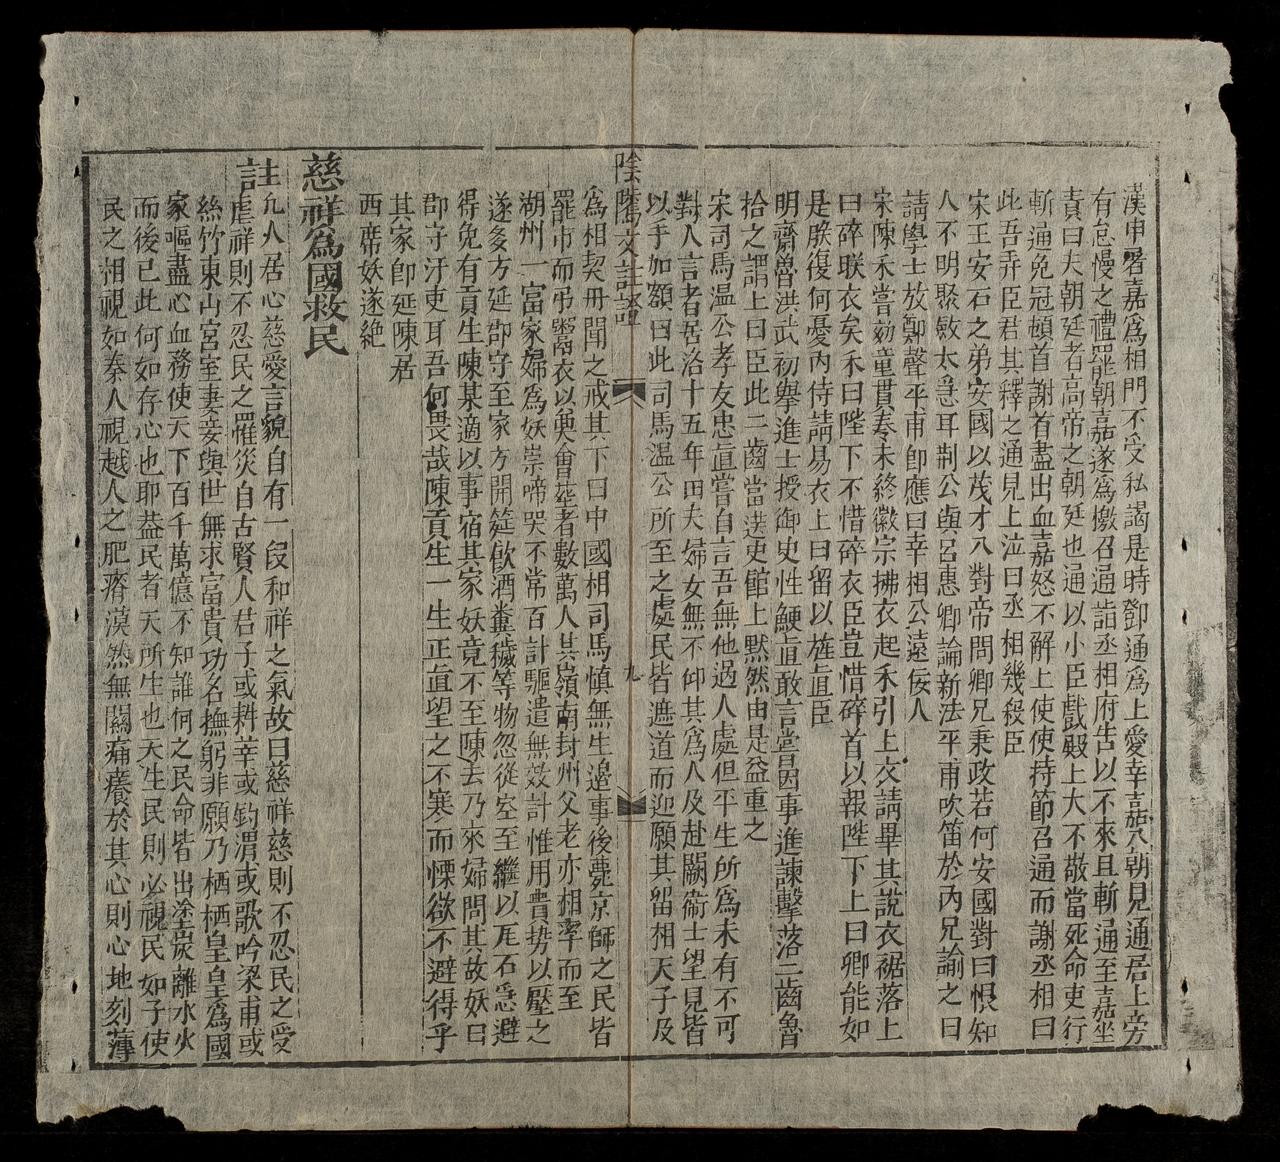 漢申屠嘉為相門不受私謁是時鄧通為上愛幸嘉入朝見通居上旁
有怠慢之禮罷朝嘉遂為檄召通詣丞相府告以不來且斬通至嘉坐
責曰夫朝廷者高帝之朝廷也通以小臣戲殿上大不敬當死命吏行
斬通免冠頓首謝首盡出血嘉怒不解上使使持節召通而謝丞相曰
此吾弄臣君其釋之通見上泣曰丞相幾殺臣
宋王安石之弟安國以茂才入對帝問卿兄秉政若何安國對曰恨知
人不明聚斂太急耳荆公與呂惠卿論新法平甫吹笛於內兄諭之曰
請學士放鄭聲平甫卽應曰幸相公遠佞人
宋陳禾嘗劾童貫奏未終徽宗拂衣起禾引上衣請畢其說衣裾落上
曰碎朕衣矣禾曰陛下不惜碎衣臣豈惜碎首以報陛下上曰卿能如
是朕復何憂內侍請易衣上曰留以旌直臣
明齋魯洪武初舉進士授御史性鯁直敢言嘗因事進諫擊落二齒魯
拾之謂上曰臣此二齒當送史館上默然由是益重之
宋司馬温公孝友忠直嘗自言吾無他過人處但平生所為未有不可
對人言者居洛十五年田夫婦女無不仰其為人及赴闕衛士望見皆
以手加額曰此司馬溫公所至之處民皆遮道而迎願其留相天子及
陰隲文註證 九
為相契丹聞之戒其下曰中國相司馬慎無生邊事後薨京師之民皆
罷市而弔鬻衣以奠會塟者數萬人其嶺南封州父老亦相率而至
湖州一富家婦為妖祟啼哭不常百計驅遣無效計惟用貴势以壓之
遂多方延郡守至家方開筵飲酒糞穢等物忽從空至繼以瓦石急避
得免有貢生陳某適以事宿其家妖竟不至陳去乃來婦問其故妖曰
郡守汙吏耳吾何畏哉陳貢生一生正直望之不寒而慄欲不避得乎
其家卽延陳居
西席妖遂絶
慈祥為國救民
註凡人居心慈愛言貌自有一段和祥之氣故曰慈祥慈則不忍民之受
虐祥則不忍民之罹災自古賢人君子或耕莘或釣渭或歌吟梁甫或
絲竹東山宮室妻妾與世無求富貴功名撫躬非願乃栖栖皇皇為國
家嘔盡心血務使天下百千萬億不知誰何之民命皆出塗炭離水火
而後已此何如存心也耶葢民者天所生也天生民則必視民如子使
民之相視如秦人視越人之肥瘠漠然無關痛癢於其心則心地刻薄